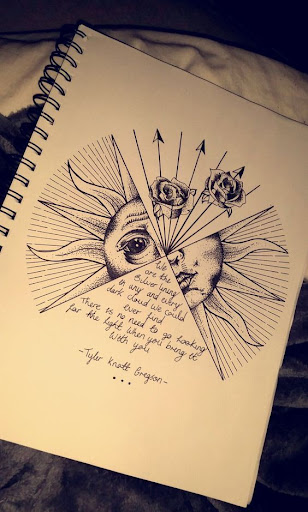 We
are the
Silver lining
in any and every
dark cloud we could
ever find
There is no need to go looking
for the light when you bring it
With you
-Tyler Knott Gregson-